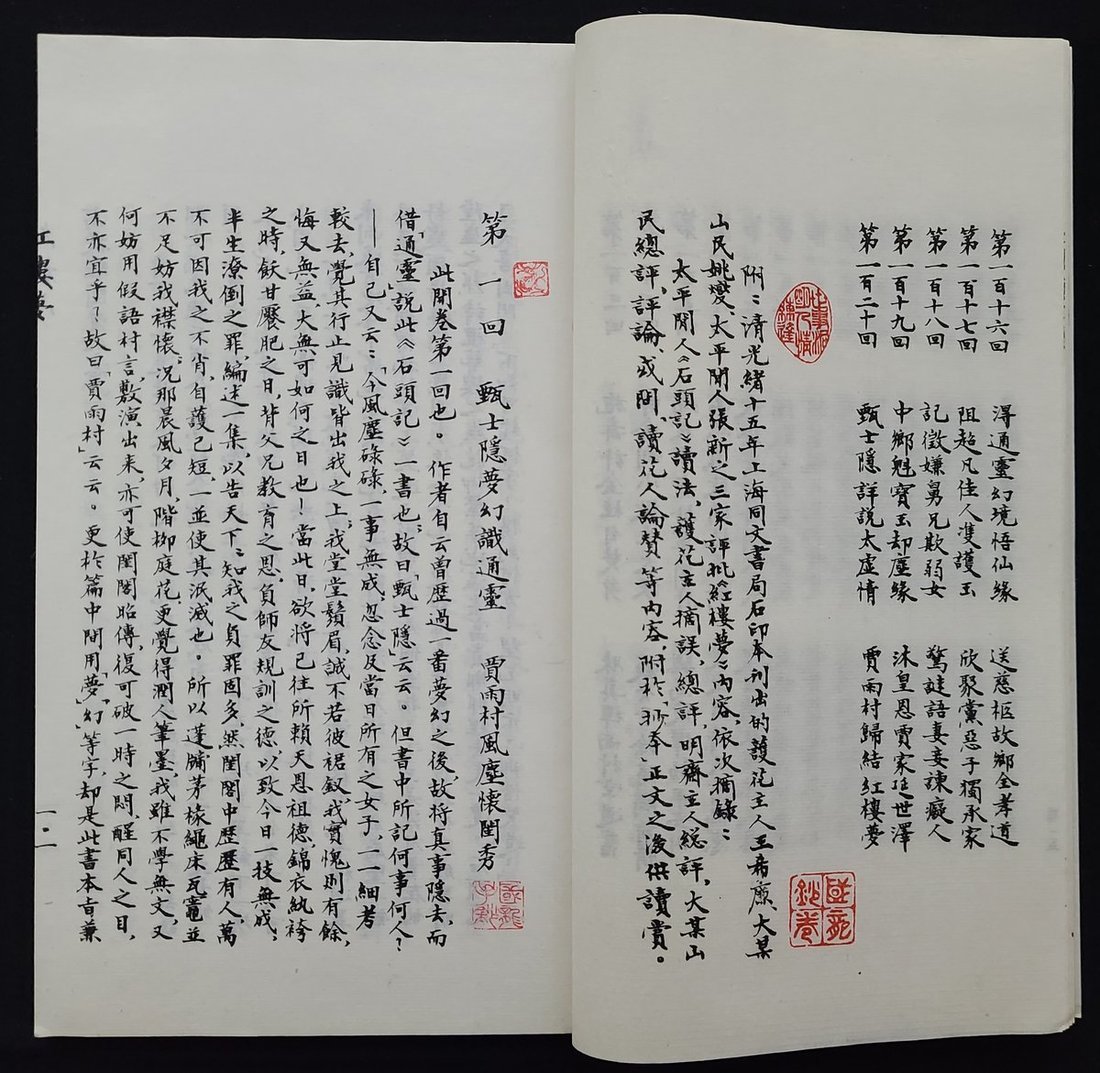 第一百十六回 得通靈幻境悟仙緣 送慈柩故鄉全孝道
第一百十七回 阻超凡佳人雙護玉 欣聚黨惡子獨承家
第一百十八回 記微嫌舅兄欺弱女 驚謎語妻妾諫癡人
第一百十九回 中鄉魁寶玉却塵緣 沐皇恩賈家延世澤
第一百二十回 甄士隱詳説太虛情 賈雨村歸結紅樓夢
附：清光緒十五年上海同文書局石印本刊出的護花主人王希廉、大某
山民姚燮、太平閒人張新之三家評批《紅樓夢》內容，依次摘錄：
太平閒人《石頭記》讀法，護花主人摘誤，總評，明齋主人總評，大某山
民總評，評論，或問，讀花人論贊等內容，附於「抄本」正文之後供讀賞。
第一回 甄士隱夢幻識通靈 賈雨村風塵懷閨秀
此開卷第一回也。作者自云曾歷過一番夢幻之後，故將真事隱去，而
借「通靈」説此《石頭記》一書也，故曰「甄士隱」云云。但書中所記何事何人？
——自己又云：「今風塵碌碌，一事無成，忽念及當日所有之女子，一一細考
較去，覺其行止見識皆出我之上，我堂堂鬚眉，誠不若彼裙釵，我實愧則有餘，
悔又無益，大無可如何之日也！當此日，欲將已往所賴天恩祖德，錦衣紈袴
之時，飫甘饜肥之日，背父兄教育之恩，負師友規訓之德，以致今日一技無成，
半生潦倒之罪，編述一集，以告天下：知我之負罪固多，然閨閣中歷歷有人，萬
不可因我之不肖，自護己短，一並使其泯滅也。所以蓬牖茅椽，繩床瓦竈，並
不足妨我襟懷，況那晨風夕月，階柳庭花，更覺得潤人筆墨，我雖不學無文，又
何妨用假語村言，敷演出来，亦可使閨閣昭傳，復可破一時之悶，醒同人之目，
不亦宜乎？故曰「賈雨村」云云。更於篇中間用「夢」「幻」等字，却是此書本旨，兼
紅樓夢
國龍
鈔卷